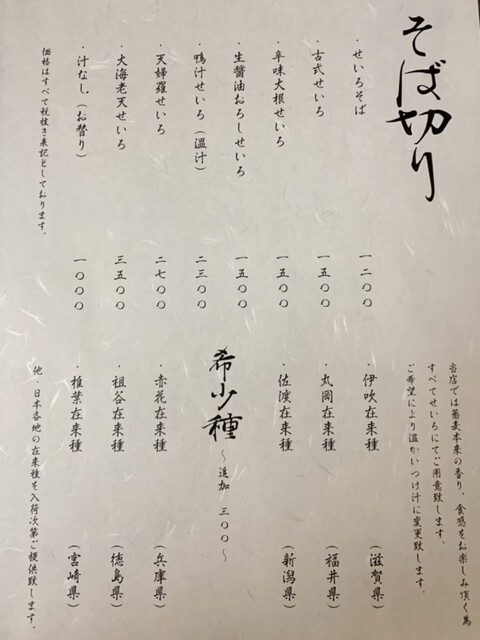 そば切り
・せいろそば 一二〇〇
・古式せいろ 一五〇〇
・辛味大根せいろ 一五〇〇
・生醤油おろしせいろ 一五〇〇
・鴨汁せいろ（温汁） 二三〇〇
・天婦羅せいろ 二七〇〇
・大海老天せいろ 三五〇〇
・汁なし．（お替り） 一〇〇〇
価格はすべて税抜き表記としております。
当店では蕎麦本来の香り、食感をお楽しみ頂く為
すべてせいろにてご用意致します。
ご希望により温かいつけ汁に変更致します。
・伊吹在来種 （滋賀県）
・丸岡在来種 （福井県）
・佐渡在来種 （新潟県）
希少種 ～追加 三〇〇～
・赤花在来種 （兵庫県）
・祖谷在来種 （徳島県）
・椎葉在来種 （宮崎県）
他・日本各地の在来種を入荷次第ご提供致します。